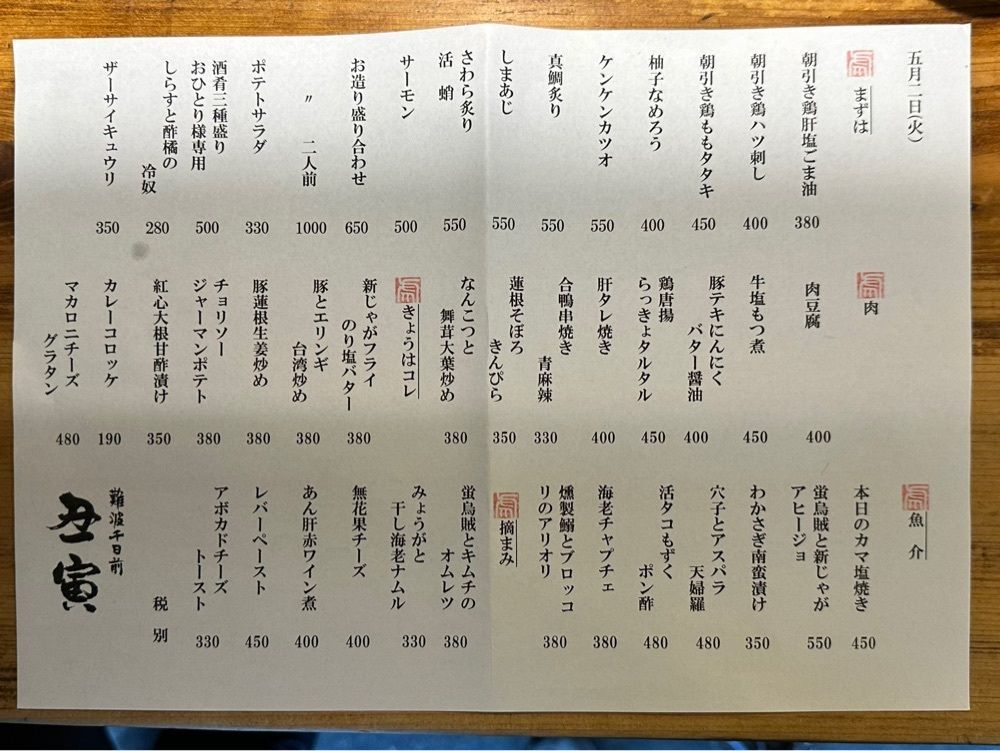 五月二日(火)
まずは
朝引き鶏肝塩ごま油 380
朝引き鶏ハツ刺し 400
朝引き鶏ももタタキ 450
柚子なめろう 400
ケンケンカツオ 550
真鯛炙り 550
しまあじ 550
さわら炙り
活 蛸 550
サーモン 500
お造り盛り合わせ 650
〃 二人前 1000
ポテトサラダ 330
酒肴三種盛り
おひとり様専用 500
しらすと酢橘の
冷奴 280
ザーサイキュウリ 350
肉
肉豆腐 400
牛塩もつ煮 450
豚テキにんにく
バター醤油 400
鶏唐揚
らっきょタルタル 450
肝タレ焼き 400
合鴨串焼き
青麻辣 330
蓮根そぼろ
きんぴら 350
なんこつと
舞茸大葉炒め 380
きょうはコレ
新じゃがフライ
のり塩バター 380
豚とエリンギ
台湾炒め 380
豚蓮根生姜炒め 380
チョリソー
ジャーマンポテト 380
紅心大根甘酢漬け 350
カレーコロッケ 190
マカロニチーズ
グラタン 480
魚介
本日のカマ塩焼き 450
蛍烏賊と新じゃが
アヒージョ 550
わかさぎ南蛮漬け 350
穴子とアスパラ
天婦羅 480
活タコもずく
ポン酢 480
海老チャプチェ 380
燻製鰯とブロッコ
リのアリオリ 380
摘まみ
蛍烏賊とキムチの
オムレツ 380
みょうがと
干し海老ナムル 330
無花果チーズ 400
あん肝赤ワイン煮 400
レバーペースト 450
アボカドチーズ
トースト 330
税別
難波千日前
丑寅